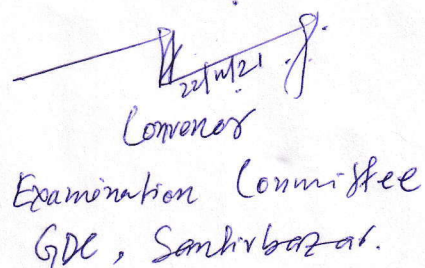 22/11/21
Convenor
Examination Committee
GDC, Santirbazar.